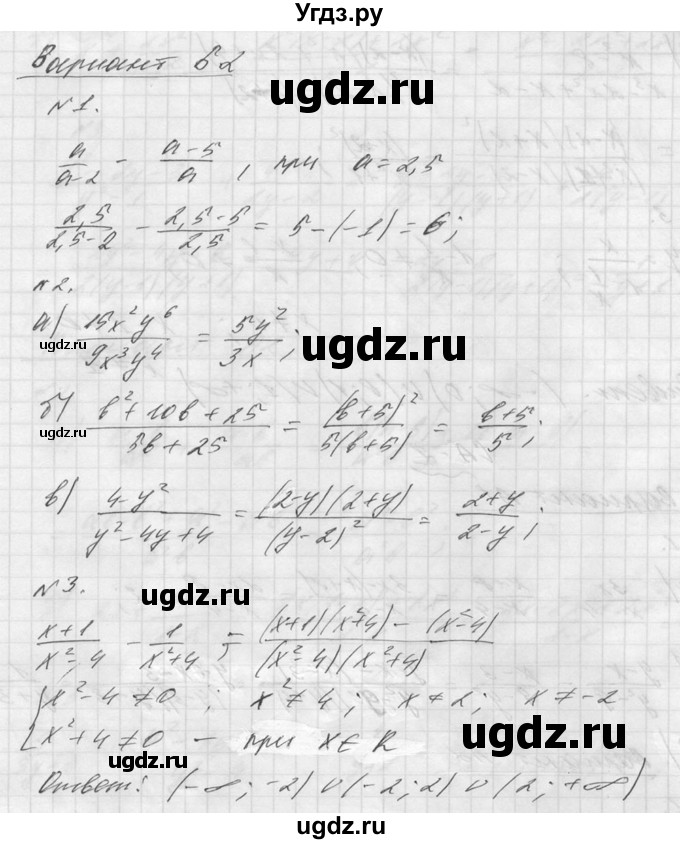 Угдз.ру
Вариант Б2
ugdz.ru
№1.
a/(a-2) - (a-5)/a, при a=2,5
2,5/(2,5-2) - (2,5-5)/2,5 = 5-(-1)=6;
№2.
а) 15x²y⁶/9x³y⁴ = 5y²/3x;
ugdz.ru
ugdz.ru
б) (b²+10b+25)/(5b+25) = (b+5)²/5(b+5) = (b+5)/5;
ugdz.ru
в) (4-y²)/(y²-4y+4) = (2-y)(2+y)/(y-2)² = (2+y)/(2-y);
№3.
ugdz.ru
(x+1)/(x²-4) - 1/(x²+4) = ((x+1)(x²+4) - (x²-4))/((x²-4)(x²+4))
{x²-4≠0; x²≠4; x≠2; x≠-2
{x²+4≠0 - при x∈R
ugdz.ru
ugdz.ru
Ответ: (-∞; -2)∪(-2; 2)∪(2; +∞)
ugdz.ru